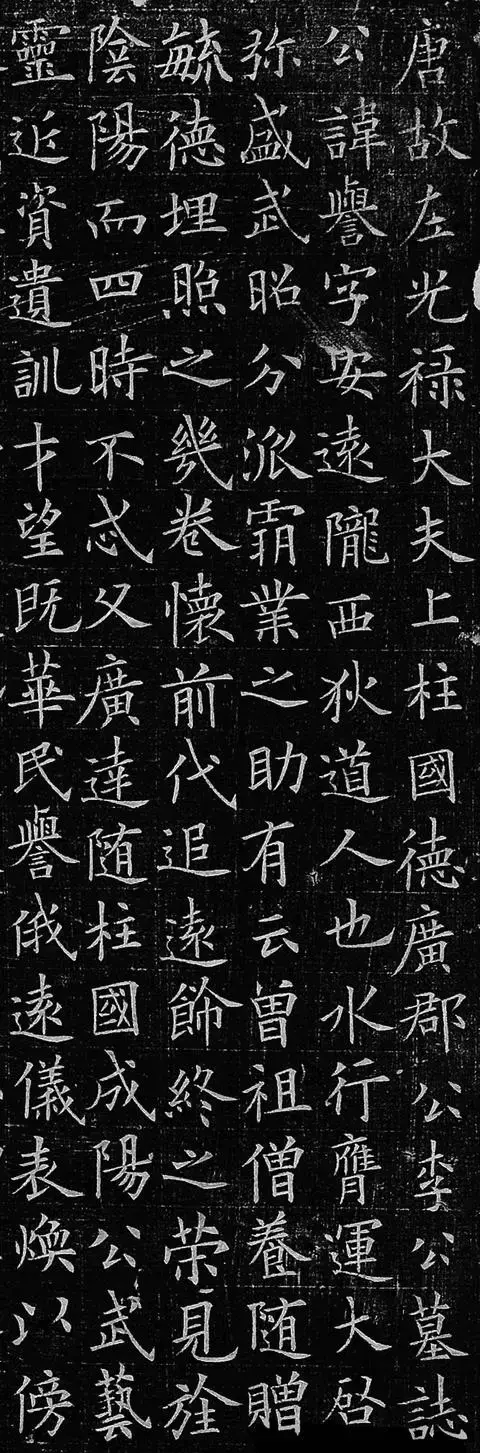 唐故左光禄大夫上柱國德廣郡公李公墓誌
公諱譽字安遠隴西狄道人也水行膺運大啓
弥盛武昭分派霸業之助有云曽祖僧養随贈
毓德埋照之幾卷懷前代追遠飾終之荣見旌
陰陽而四時不忒父廣達随柱國成陽公武藝
靈近資遺訓才望既華民譽俄遠儀表煥以傍